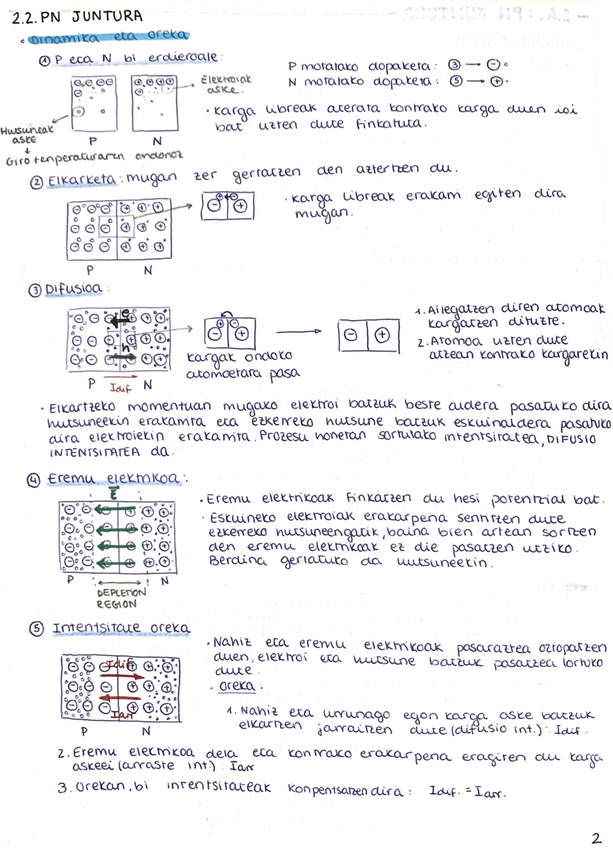 2.2. PN JUNTURA
• Dinamika eta oreka
① P eta N bi erdieroale:
Elektroiak
aske.
Hutsuneak
aske
↓
Giro tenperaturaren ondorioz
P N
P motatako dopaketa: ③ → ⊖ ◦
N motatako dopaketa: ⑤ → ⊕ ·
• Karga libreak aterata kontrako karga duen ioi
bat uzten dute finkatuta.
② Elkarketa: mugan zer gertatzen den aztertzen du.
P N
• Karga libreak erakarri egiten dira
mugan.
③ Difusioa:
e
h
P Idif N
kargak ondoko
atomoetara pasa
1. Ailegatzen diren atomoak
kargatzen dituzte.
2. Atomoa uzten dute
atzean kontrako kargarekin
• Elkartzeko momentuan mugako elektroi batzuk beste aldera pasatuko dira
hutsuneekin erakarrita eta ezkerreko hutsune batzuk eskuinaldera pasatuko
dira elektroiekin erakarrita. Prozesu honetan sortutako intentsitatea, DIFUSIO
INTENTSITATEA da.
④ Eremu elektrikoa:
E
P N
DEPLETION
REGION
• Eremu elektrikoak finkatzen du hesi potentzial bat.
• Eskuineko elektroiak erakarpena sentitzen dute
ezkerreko hutsuneengatik, baina bien artean sortzen
den eremu elektrikoak ez die pasatzen utziko.
Berdina gertatuko da hutsuneekin.
⑤ Intentsitate oreka
Idif
Iarr
P N
• Nahiz eta eremu elektrikoak pasaraztea oztopatzen
duen, elektroi eta hutsune batzuk pasatzea lortuko
dute.
• Oreka:
1. Nahiz eta urrunago egon karga aske batzuk
elkartzen jarraitzen dute (difusio int.): Idif.
2. Eremu elektrikoa dela eta kontrako erakarpena eragiten du karga
askeei (arraste int.): Iarr
3. Orekan, bi intentsitateak konpentsatzen dira: Idif. = Iarr.
2